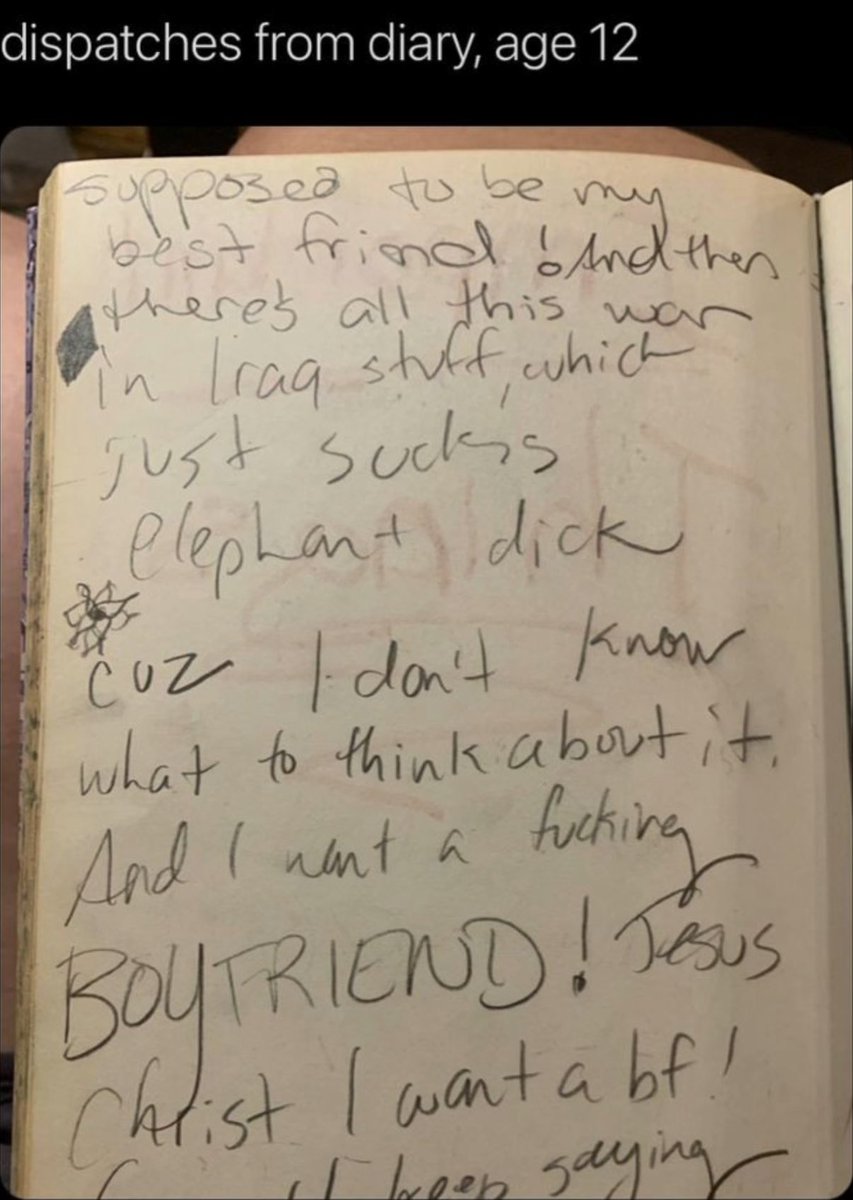 dispatches from diary, age 12
supposed to be my
best friend! And then
there's all this war
in Iraq stuff, which
just sucks
elephant dick
cuz I don't know
what to think about it.
And I want a fucking
BOYFRIEND! Jesus
Christ I want a bf!
keep saying